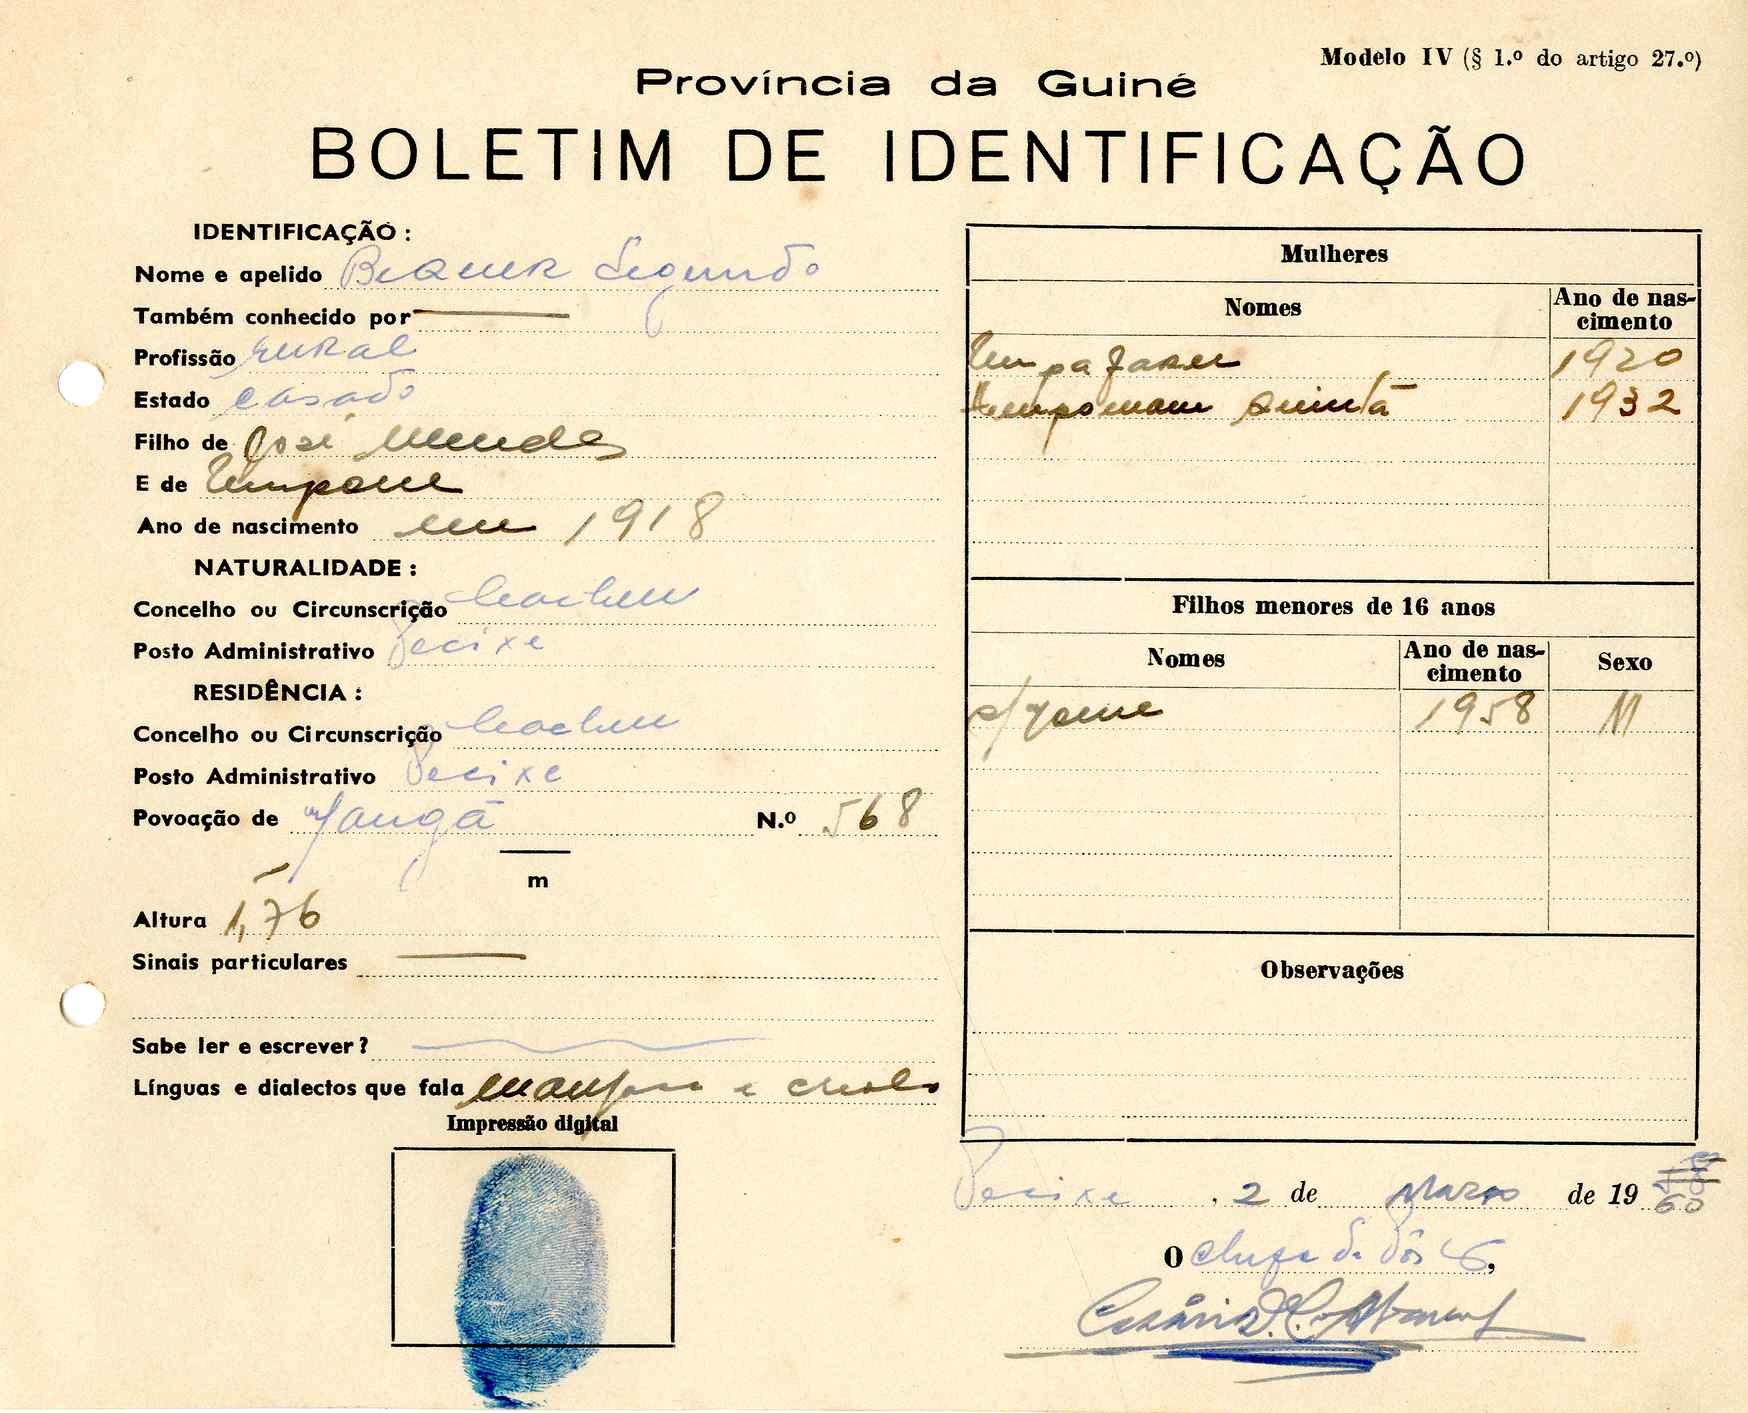 Modelo IV (§ 1.º do artigo 27.º)
Província da Guiné
BOLETIM DE IDENTIFICAÇÃO
IDENTIFICAÇÃO :
Nome e apelido Segundo
Também conhecido por
Profissão rural
Estado casado
Filho de José Mendes
E de
Ano de nascimento em 1918
NATURALIDADE :
Concelho ou Circunscrição Cacheu
Posto Administrativo Pecixe
RESIDÊNCIA :
Concelho ou Circunscrição Cacheu
Posto Administrativo Pecixe
Povoação de N.º 568
m
Altura 1,76
Sinais particulares
Sabe ler e escrever ?
Línguas e dialectos que fala e
Impressão digital
Mulheres
Nomes Ano de nas-
cimento
1920
1932
Filhos menores de 16 anos
Nomes Ano de nas-
cimento Sexo
s/nome 1958 M
Observações
Pecixe, 2 de Março de 19 60
O chefe de Pôsto,